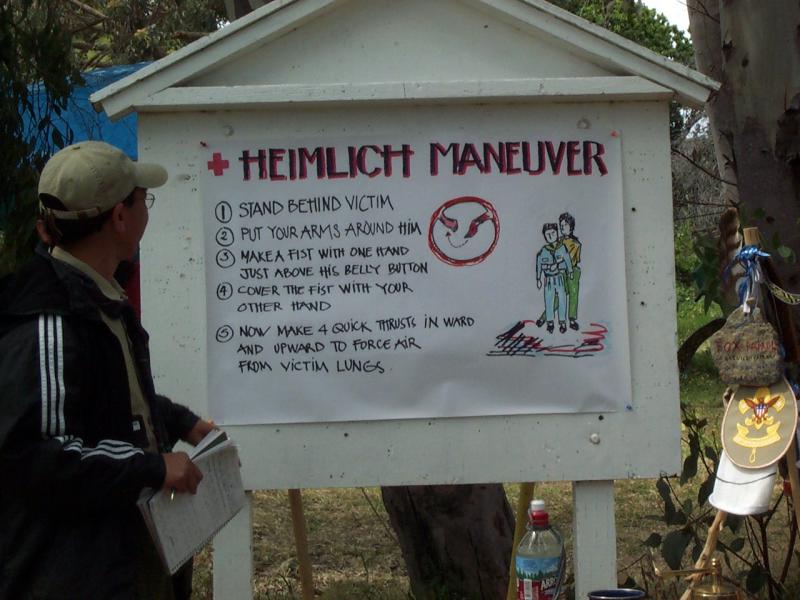 + HEIMLICH MANEUVER
1 STAND BEHIND VICTIM
2 PUT YOUR ARMS AROUND HIM
3 MAKE A FIST WITH ONE HAND
JUST ABOVE HIS BELLY BUTTON
4 COVER THE FIST WITH YOUR
OTHER HAND
5 NOW MAKE 4 QUICK THRUSTS IN WARD
AND UPWARD TO FORCE AIR
FROM VICTIM LUNGS.